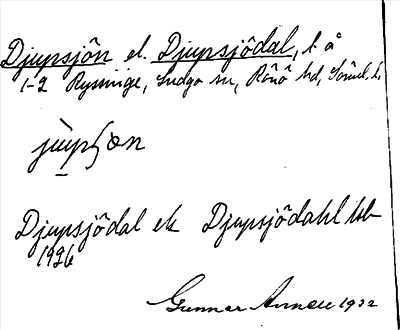 Djupsjön el. Djupsjödal, l. å
1-2 Rysninge, Ludgo sn, Rönö hd, Söml. l.
jùpʃơn
Djupsjödal ek Djupsjödahl hsb
1926
Gunnar 1932